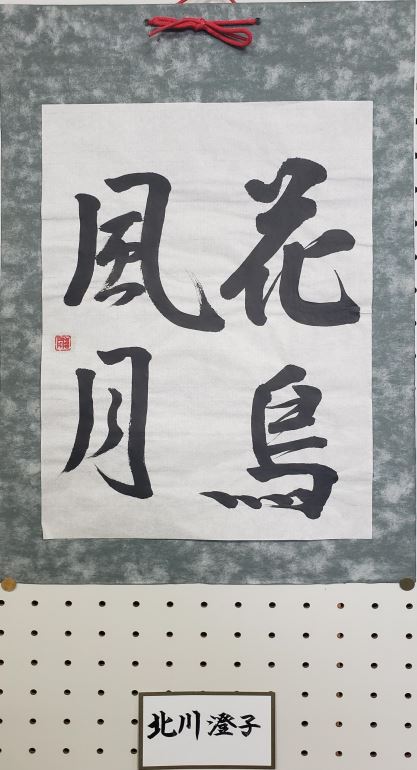 花鳥
風月
北川澄子